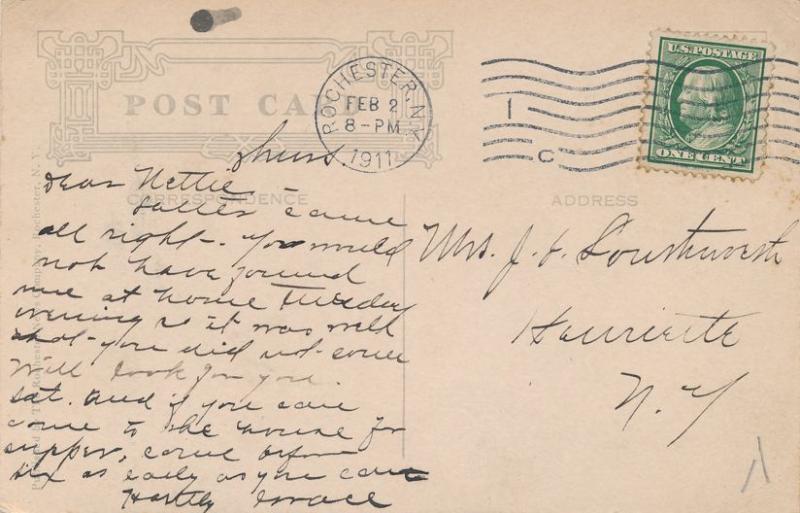 POST CA
ROCHESTER, N.Y.
FEB 2
8-PM
1911
1
C
U.S. POSTAGE
ONE CENT
Thurs
Dear Nettie
CORRESPONDENCE
ADDRESS
came
all right-. You would
not have found
me at home Tuesday
evening so it was well
that you did not come
Will look for you
Sat. and if you can
come to the house for
supper, come before
six as early as you can
Hastily Grace
Mrs. J. Southworth
Henrietta
N. Y
Rochester News Company, Rochester, N. Y.